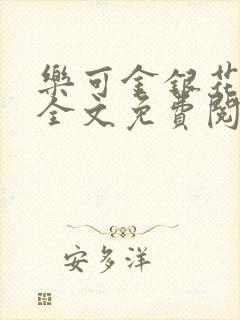 樂可金銀花
全文免費閱
安多洋